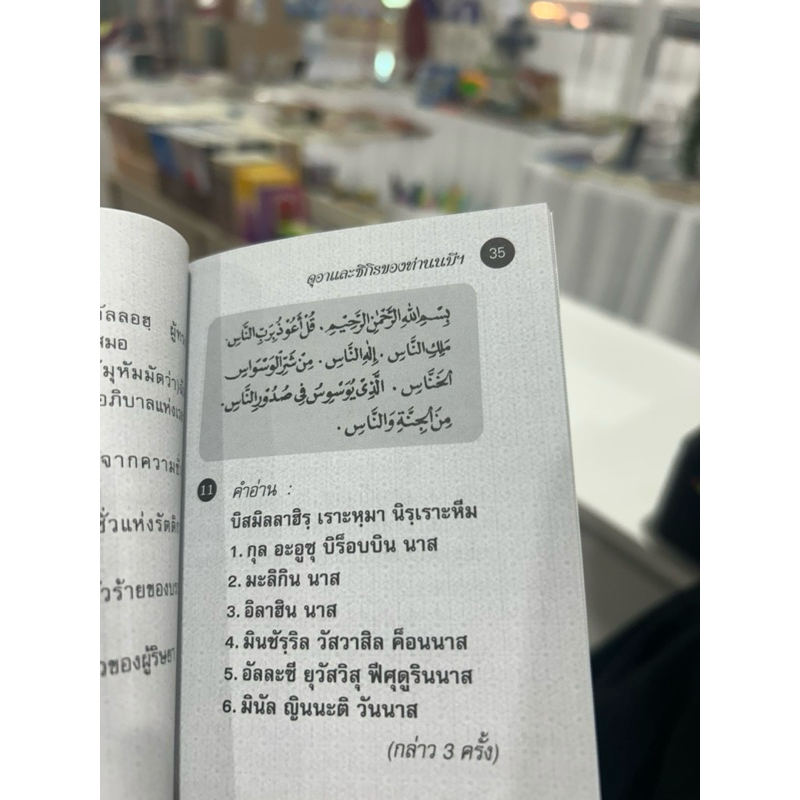 ดุอาและซิกิรของท่านนบีฯ 35
بِسْمِ اللهِ الرَّحْمٰنِ الرَّحِيْمِ. قُلْ أَعُوْذُ بِرَبِّ النَّاسِ.
مَلِكِ النَّاسِ. إِلٰهِ النَّاسِ. مِنْ شَرِّ الْوَسْوَاسِ
الْخَنَّاسِ. الَّذِيْ يُوَسْوِسُ فِيْ صُدُوْرِ النَّاسِ.
مِنَ الْجِنَّةِ وَالنَّاسِ.
11 คำอ่าน :
บิสมิลลาฮิรฺ เราะหฺมา นิรฺเราะหีม
1. กุล อะอูซุ บิร็อบบิน นาส
2. มะลิกิน นาส
3. อิลาฮิน นาส
4. มินชัรฺริล วัสวาสิล ค็อนนาส
5. อัลละซี ยุวัสวิสุ ฟีศุดูรินนาส
6. มินัล ญินนะติ วันนาส
(กล่าว 3 ครั้ง)
ัลลอฮฺ
สมอ
มุหัมมัดว่า
อภิบาลแห่ง
จากความ
ชั่วแห่งรัตติ
ร้ายของบร
ของผู้ริษยา